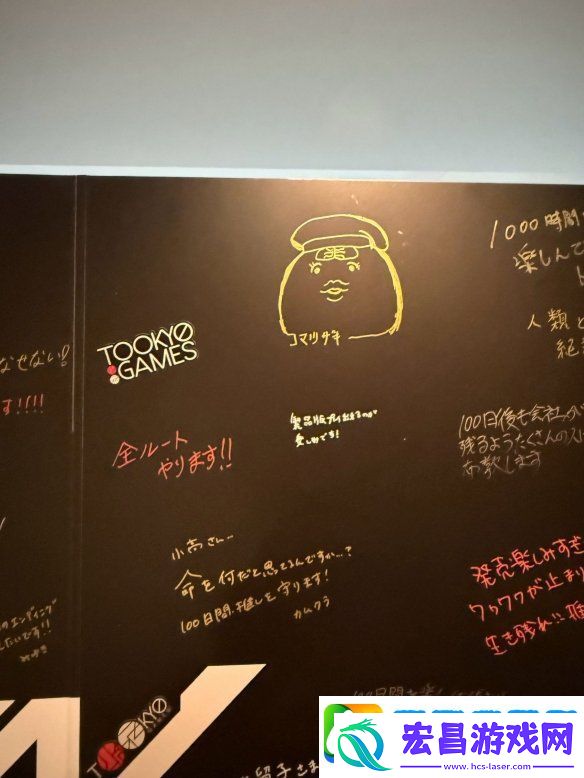 1000時間
楽しんで
コマツザキ
人類と
絶
TOOKYO
GAMES
なせない!
す!!!!
全ルート
やります!!
製品版プレイ出来るのが
楽しみです!
100日後も会社が
残るようたくさんの人に
布教します
小高さん…
命を何だと思ってるんですか…?
100日間、推しを守ります!
カムクラ
発売楽しみすぎ
ワクワクが止まり
生き残れ…
のエンディング
たいです!!
100日間
TOOKYO
留子さま
宏昌游戏网
www.hcs-laser.com